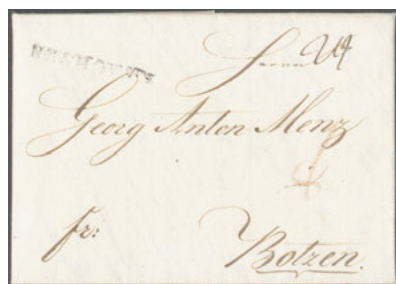 Herrn
Georg Anton Menz
fr:
Botzen.